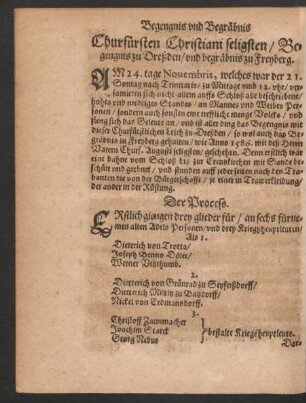 Begengnis vnd Begräbnis
Churfürsten Christiani seligsten / Be-
gengnis zu Dreßden / vnd begräbnis zu Freyberg.
AM 24. tage Nouembris, welches war der 21.
Sontag nach Trinitatis / zu Mittage vmb 12. vhr / ver-
samleten sich nicht allein auffs Schloß alle beschriebene /
hohes vnd niedriges Standes / an Mannes vnd Weibes Perso-
nen / sondern auch sonsten eine treffliche menge Volcks / vnd
fieng sich das Geleute an / vnd ist aller ding das Begengnis mit
dieser Churfürstlichen Leich zu Dreßden / so wol auch das Be-
gräbnis zu Freyberg gehalten / wie Anno 1586. mit deß Herrn
Vatern Churf. Augusti seligsten / geschehen. Denn erstlich war
eine bahne vom Schloß biß zur Creutzkirchen mit Sande be-
schütt vnd gerebnet / vnd stunden auff jeder seiten nach den Tra-
banten die von der Bürgerschafft / je einer in Trawrkleidung /
der ander in der Rüstung.
Der Process.
ERstlich giengen drey glieder für / an sechs fürne-
men alten Adels Personen / vnd drey Kriegßheuptleuten /
Als 1.
Dieterich von Trotta /
Joseph Benno
Werner Vitzthumb.
2.
Dietterich von Grünrad zu Seyferßdorff /
Dietterich Miltitz zu Batzdorff /
Nickel von Erdmansdorff.
3.
Christoff Zaunmacher
Joachim Starck } bestalte Kriegßheuptleute.
Georg Nebur